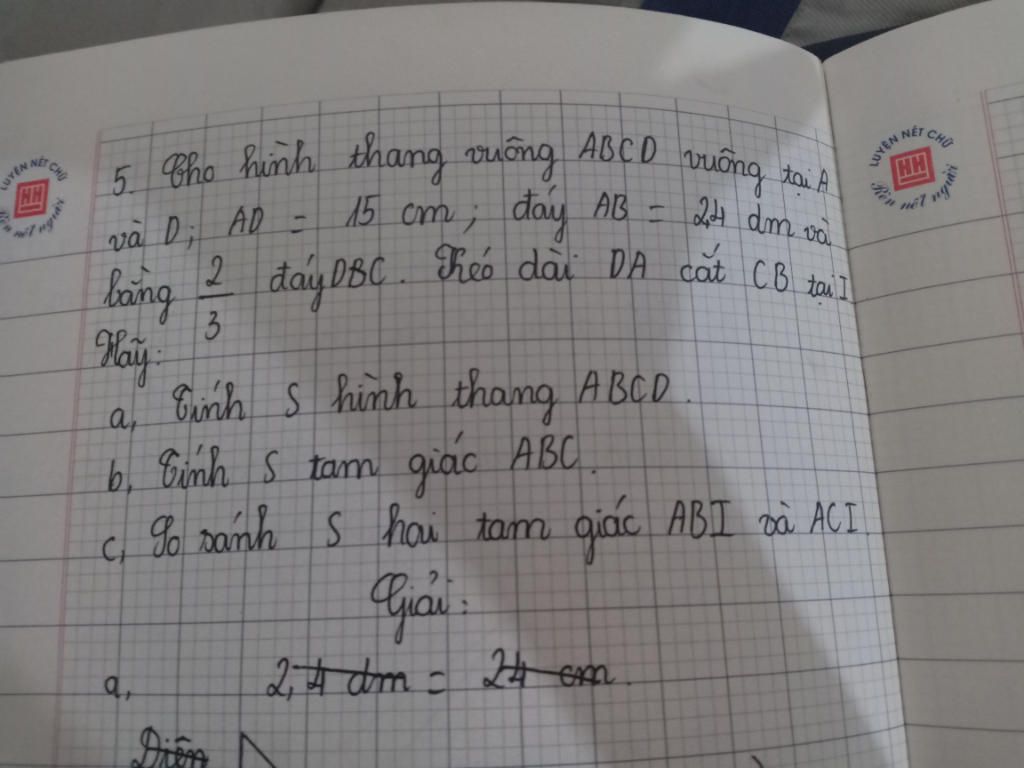 LUYỆN NÉT CHỮ
HH
Rèn nết người
LUYỆN NÉT CHỮ
HH
Rèn nết người
5. Cho hình thang vuông ABCD vuông tại A
và D; AD = 15 cm; đáy AB = 2,4 dm và
bằng 2/3 đáy DBC. Kéo dài DA cắt CB tại I
Hãy:
a, Tính S hình thang ABCD.
b, Tính S tam giác ABC.
c, So sánh S hai tam giác ABI và ACI.
Giải:
a, 2,4 dm = 24 cm.
Diện